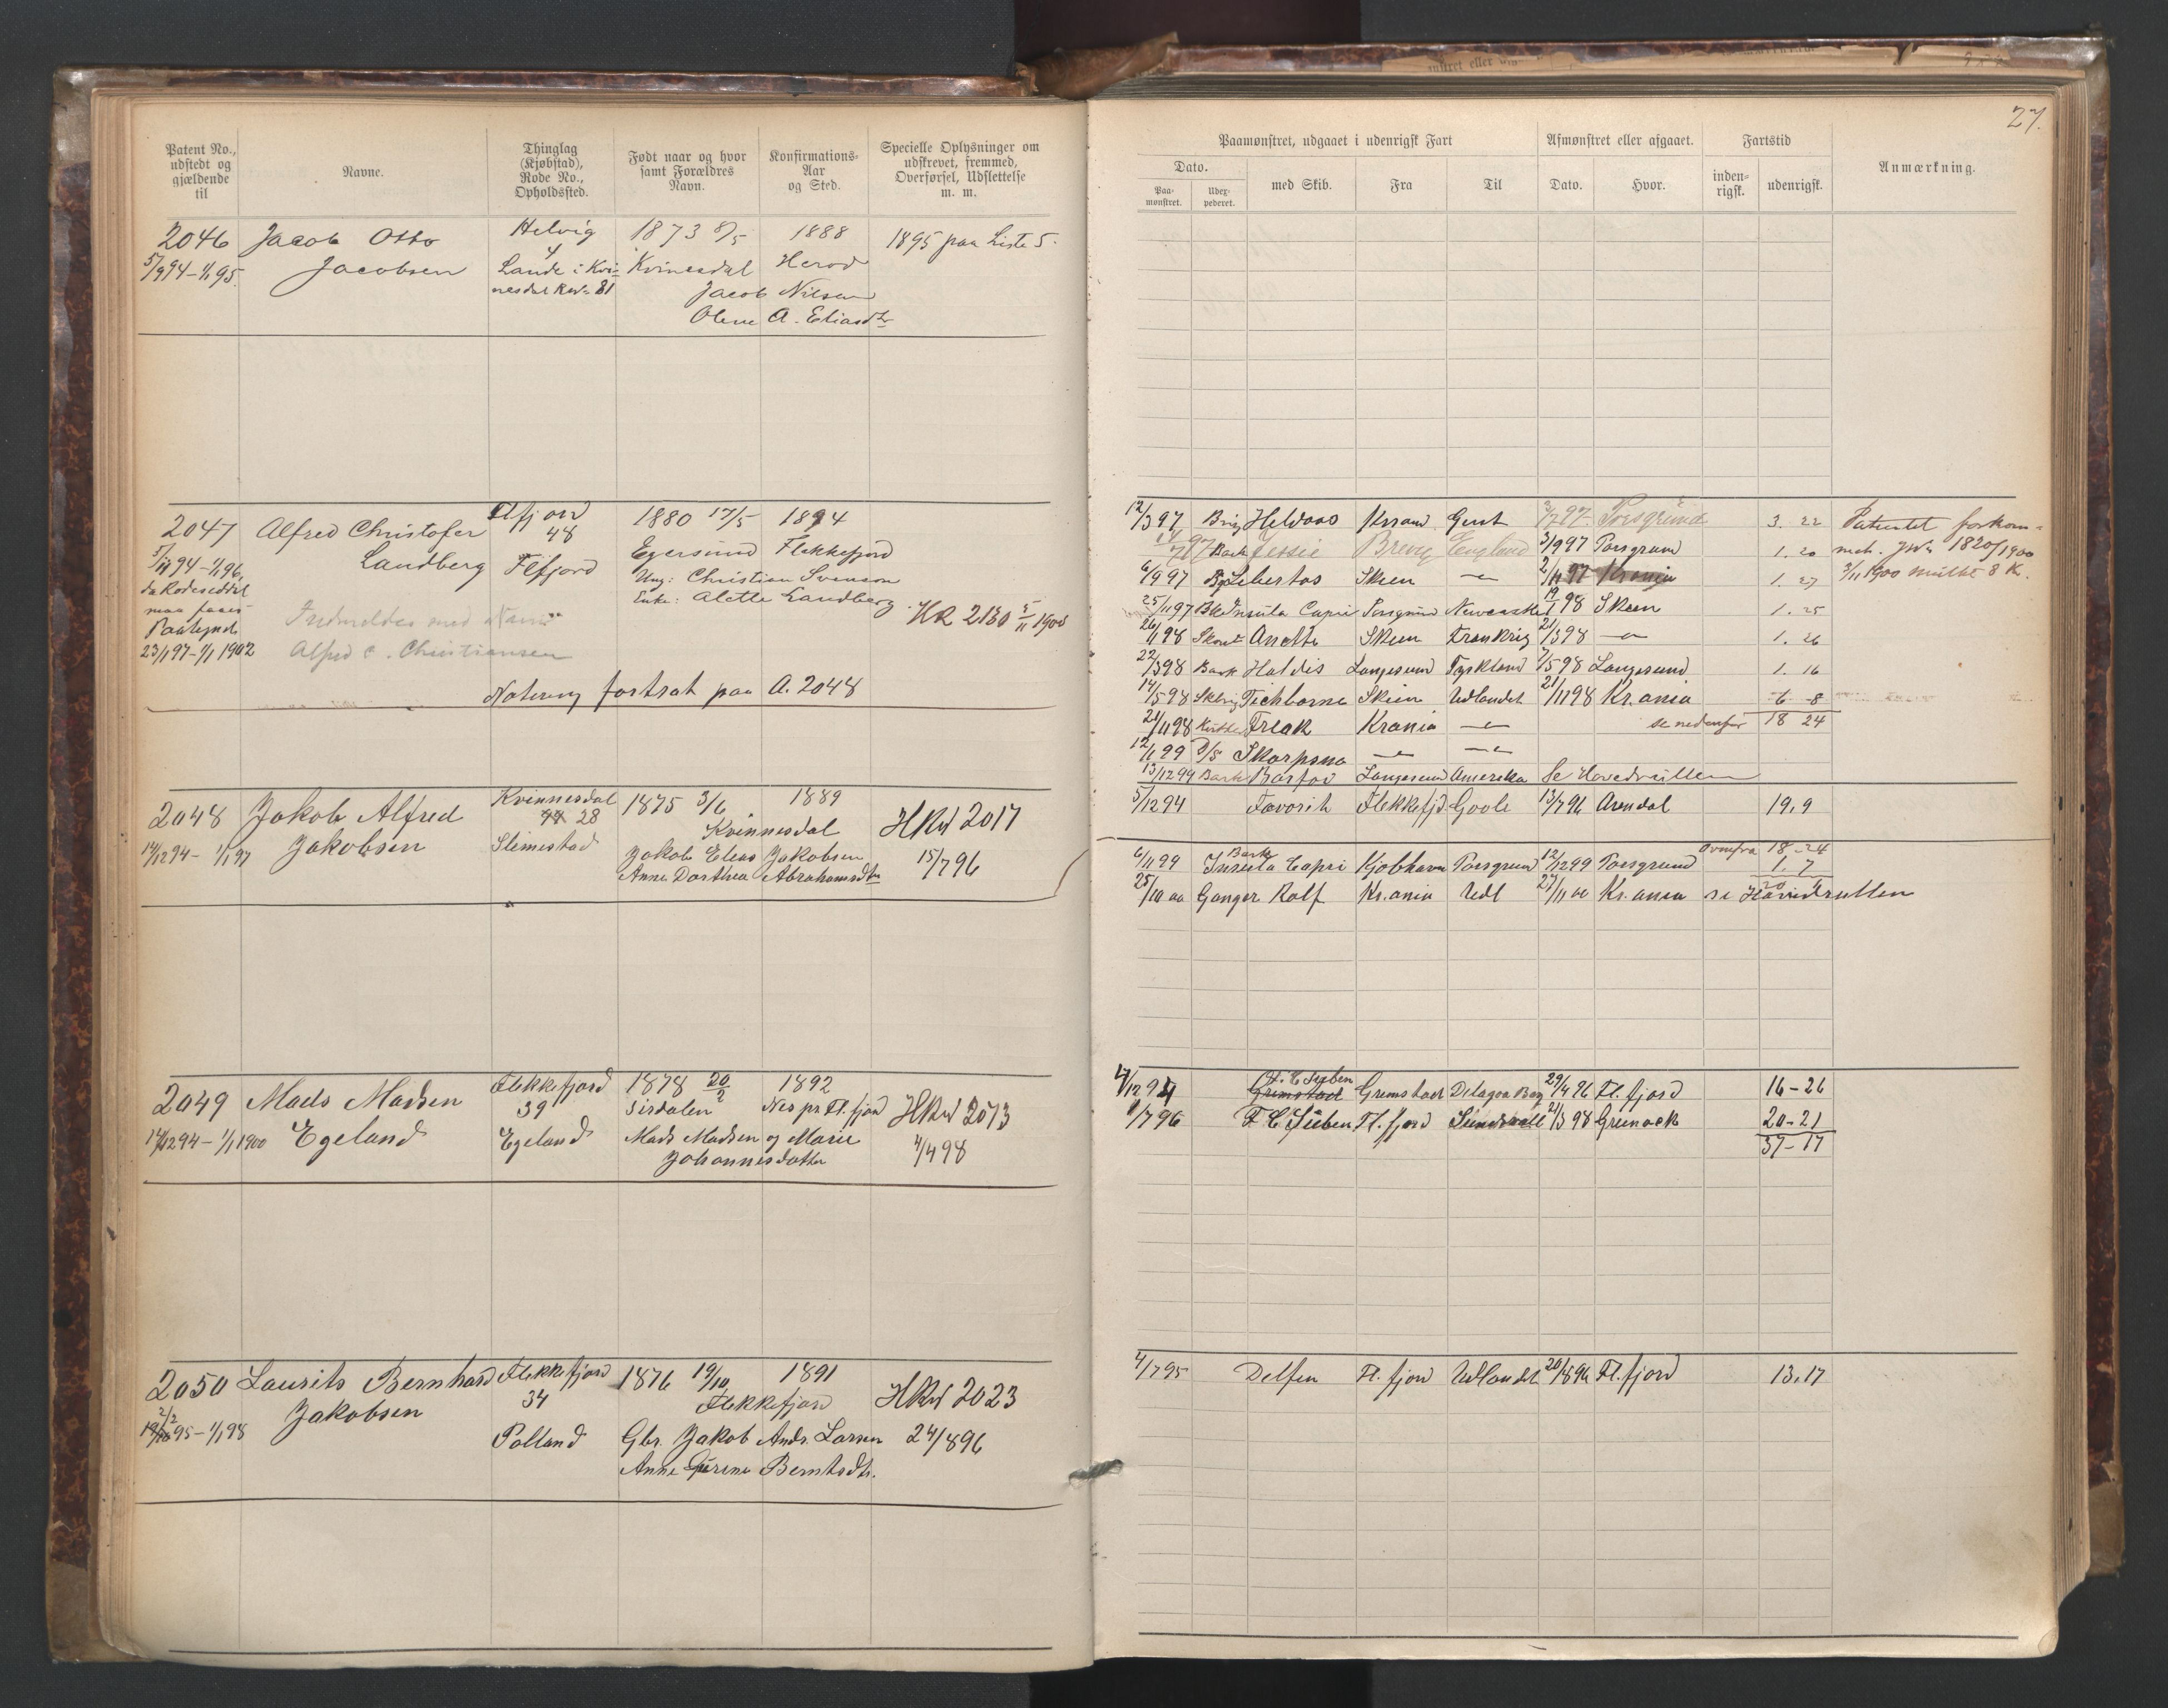 27.
Patent No., udstedt og gjældende til
Navne.
Thinglag (Kjøbstad), Rode No., Opholdssted.
Født naar og hvor samt Forældres Navn.
Konfirmations-Aar og Sted.
Specielle Oplysninger om udskrevet, fremmed, Overførsel, Udslettelse m. m.
2046 Jacob Otto Helvig 1873 8/5 1888 1895 paa Liste 5.
5/9 94 - 1/1 95. Jacobsen 4
Lande i Kvi- Kvinesdal Herod
nesdal Rev. 81 Jacob Nilsen
Olene A. Eliasdtr
2047 Alfred Christofer Flfjord 1880 17/5 1894
Landberg 48 Egersund Flekkefjord
94 - 1/1 96. Flfjord Ung: Christian Svenson
da Rodeseddel Enke: Alette Landberg
maa faaes HR 2130 5/11 1900
Paategnet
23/1 97 - 1/1 1902
Indmeldes med Navn
Alfred C. Christiansen
Notering fortsat paa A. 2048
2048 Jakob Alfred Kvinnesdal 1875 3/6 1889
14/12 94 - 1/1 97 Jakobsen 44 28 Kvinnesdal HRul 2017
Slimestad Jakob Elias Jakobsen 15/7 96
Anne Dorthea Abrahamsdtr
2049 Mads Madsen Flekkefjord 1878 20/2 1892
14/12 94 - 1/1 1900 Egeland 39 Sirdalen Nes pr. Fl. fjord HRul 2013
Egeland Mads Madsen og Marie 4/4 98
Johannesdatter
2050 Laurits Bernhard Flekkefjord 1876 19/10 1891
Jakobsen 34 Flekkefjord HRul 2023
95 - 1/1 98 Polland Gbr. Jakob Andr. Larsen 24/8 96
Anne Gurine Berntsdtr.
Paamønstret, udgaaet i udenrigsk Fart
Afmønstret eller afgaaet.
Fartstid
Anmærkning.
Dato.
Paa-mønstret.
Udex-pederet.
med Skib.
Fra
Til
Dato.
Hvor.
inden-rigsk.
udenrigsk.
12/3 97 Brig Heldaos Krsand Gent 2/7 97 Porsgrund 3. 22 Patentet forkom-
Bark Jessie Brevig England 3/9 97 Porsgrund 1. 20 met. JNr 1820/1900
6/9 97 Bg Libertas Skien 2/11 97 Krania 1. 27 3/11 1900 mulkt 8 Kr.
25/11 97 Bk Insula Capri Porsgrund Newcastle 19/1 98 Skien 1. 25
26/1 98 Skont Anette Skien Frankrig 21/3 98 1. 26
22/3 98 Bark Haldis Langesund Tyskland 7/5 98 Langesund 1. 16
14/5 98 Skbrig Tichborne Skien Udlandet 21/11 98 Kr.ania 6 8
21/11 98 Kutter Freak Krania se nedenfor 18 24
12/1 99 D/S Skorpsna
13/12 99 Bark Barfod Langesund Amerika Se Hovedrullen
5/12 94 Favorit Flekkefjd. Goole 13/7 96 Arendal 19.9
ovenfra 18-24
6/11 99 Bark Insula Capri Kjøbhavn Porsgrund 12/12 99 Porsgrund 1. 7
25/10 00 Ganger Rolf Kr.ania Udl 27/11 00 Kr.ania se Hovedrullen
17/12 94 F. C. Sieben Grimstad Grimstad Delagoa Bay 29/4 96 Fl. fjord 16-26
1/7 96 F. C. Sieben Fl. fjord Sundsvall 21/3 98 Greenock 20-21
37-17
4/7 95 Delfin Fl. fjord Udlandet 20/8 96 Fl. fjord 13.17